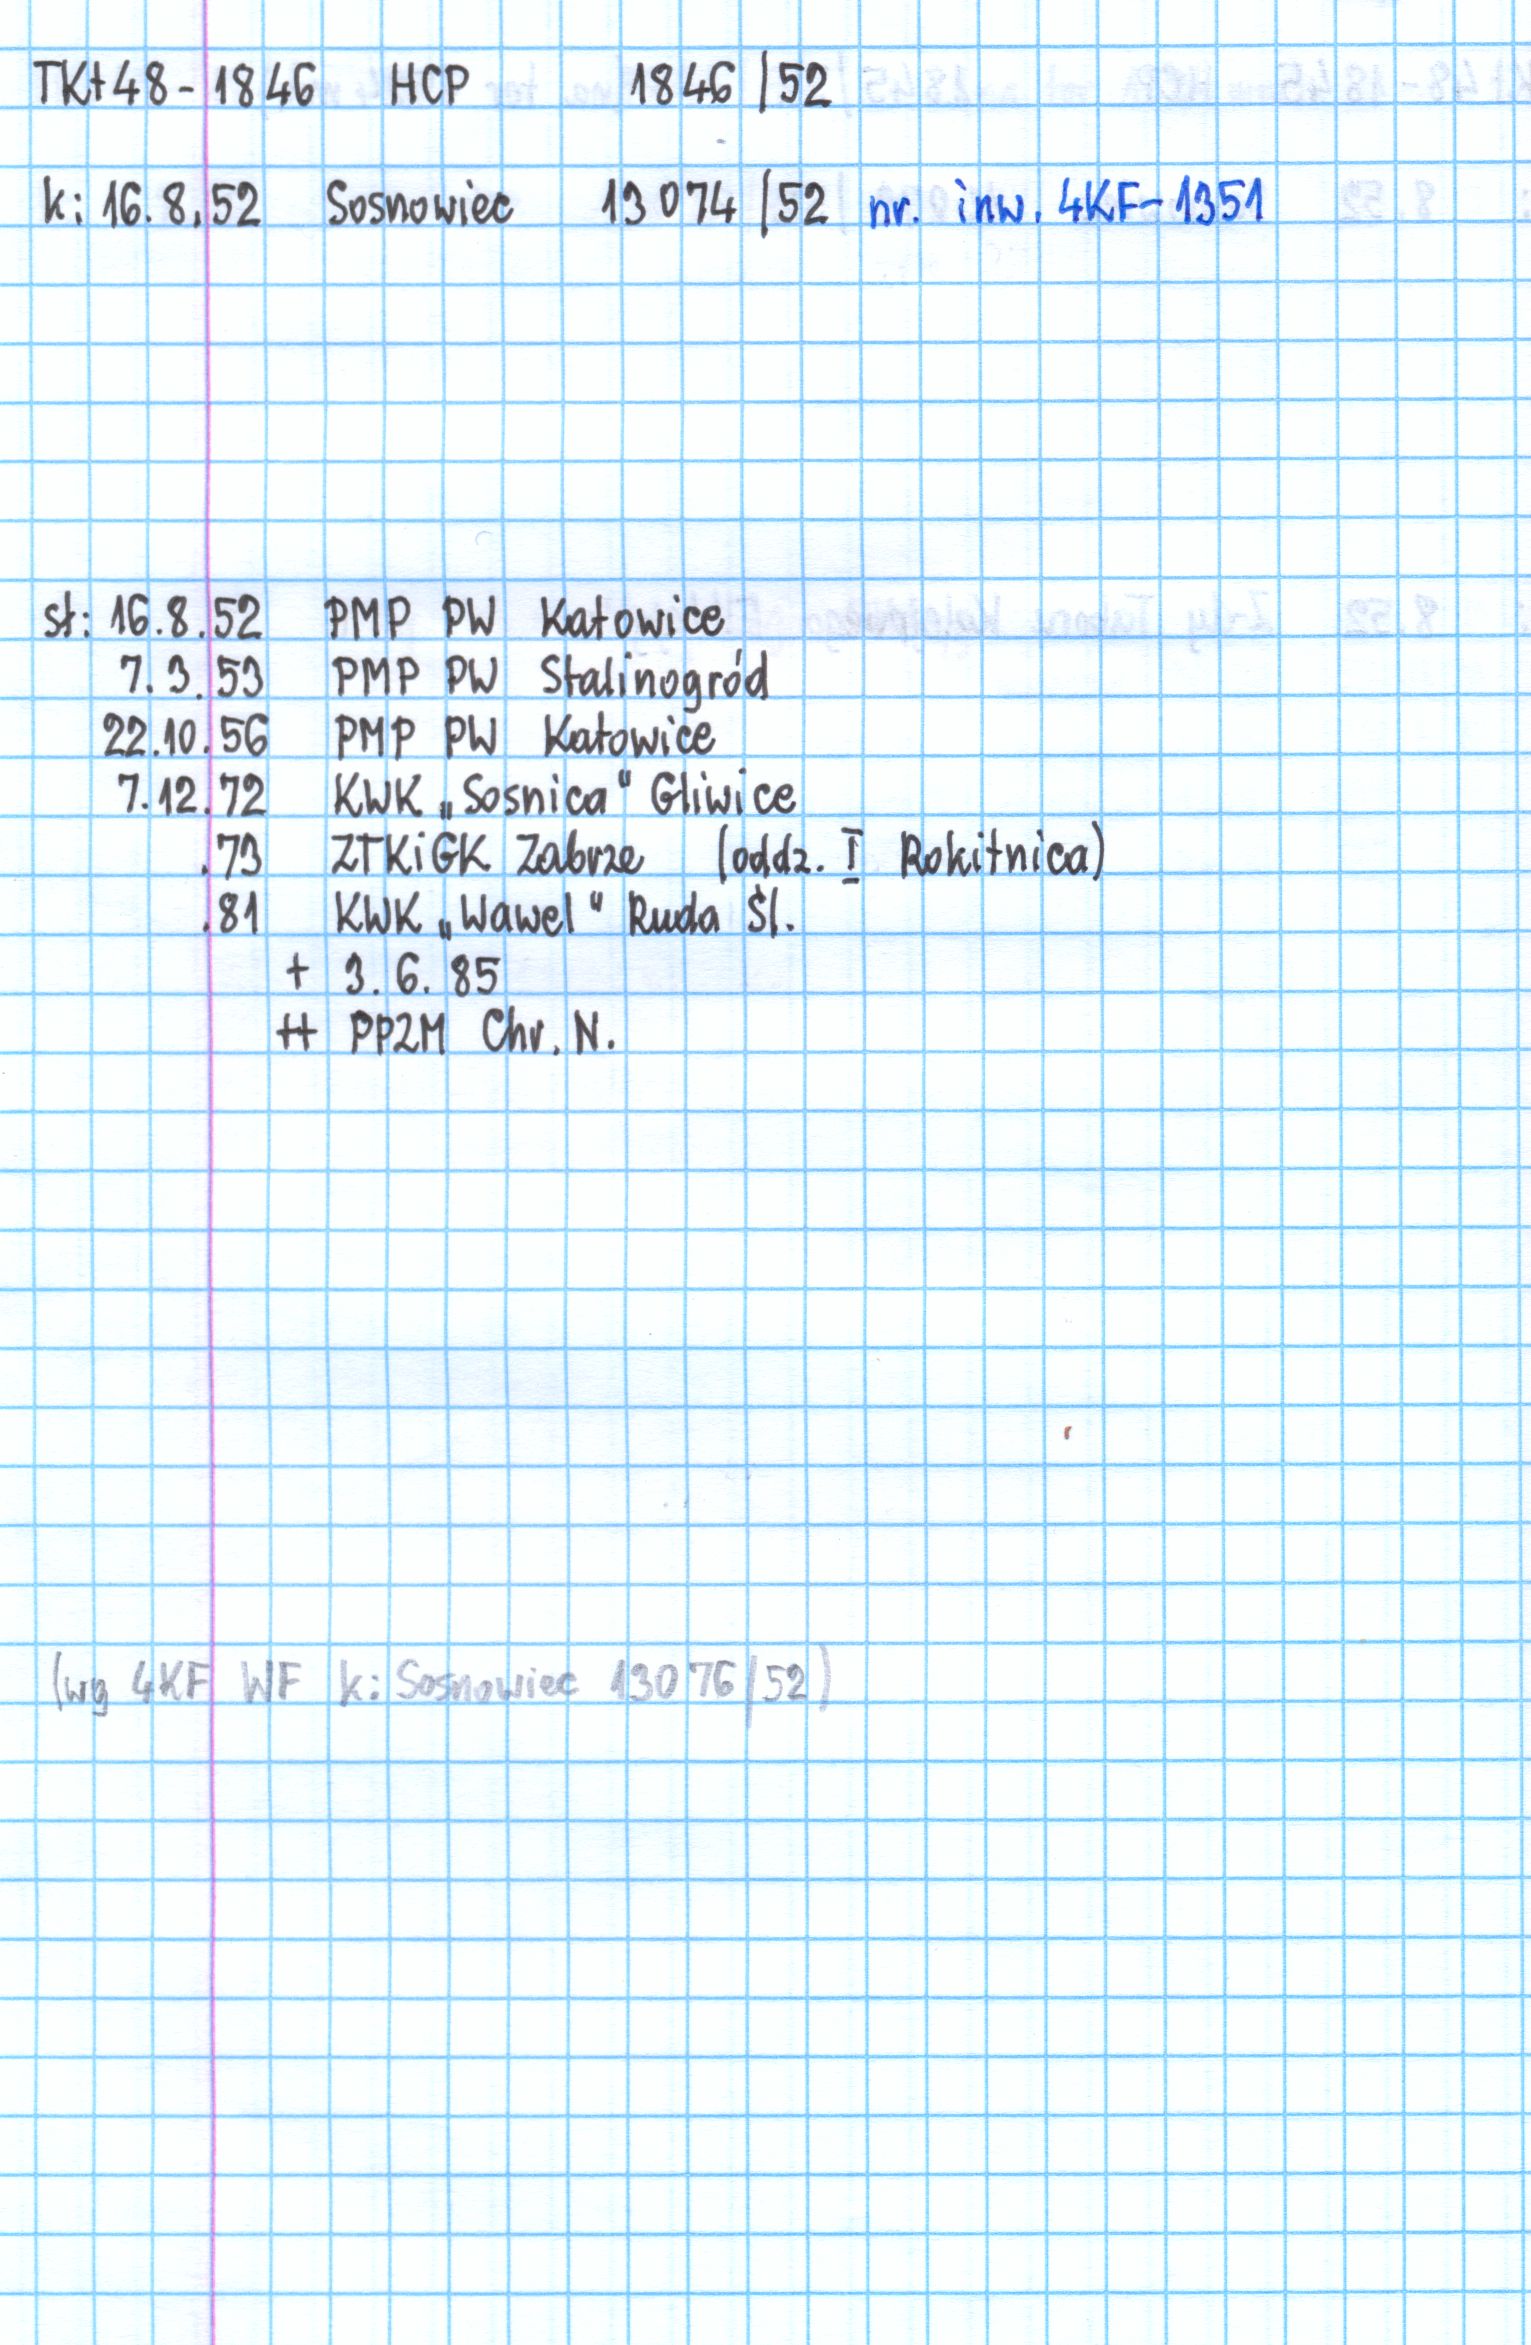 TKt48-1846 HCP 1846/52
k: 16.8.52 Sosnowiec 13074/52 nr. inw. 4KF-1351
st: 16.8.52 PMP PW Katowice
7.3.53 PMP PW Stalinogród
22.10.56 PMP PW Katowice
7.12.72 KWK „Sosnica" Gliwice
.73 ZTKiGK Zabrze (oddz. I Rokitnica)
.81 KWK „Wawel" Ruda Śl.
+ 3.6.85
++ PPZM Chr. N.
(wg 4KF WF k: Sosnowiec 13076/52)